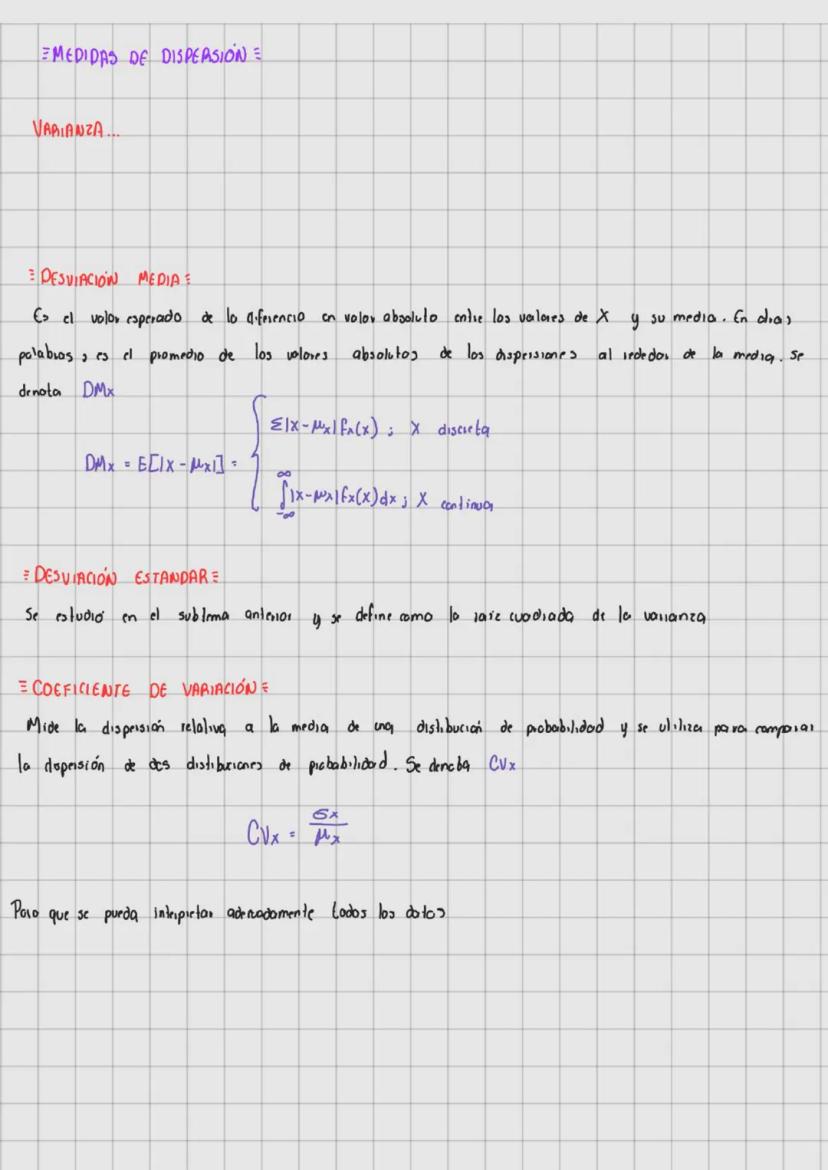 MEDIDAS DE DISPERSIÓN
VARIANZA...
DESVIACIÓN MEDIA
Es el valor esperado de la diferencia en valor absoluto entre los valores de X y su media. En otras
palabras, es el promedio de los valores absolutos de las dispersiones al rededor de la media. Se
denota DMx
Σ|x-μx|fx(x) ; X discreta
DMx = E[|X-μx|] =
∫|x-μx|fx(x)dx ; X continua
∞
-∞
DESVIACIÓN ESTANDAR
Se estudió en el subtema anterior y se define como la raiz cuadrada de la varianza
COEFICIENTE DE VARIACIÓN
Mide la dispersión relativa a la media de una distribución de probabilidad y se utiliza para comparar
la dispersión de dos distribuciones de probabilidad. Se denota CVx
CVx = σx / μx
Para que se pueda interpretar adecuadamente todos los datos